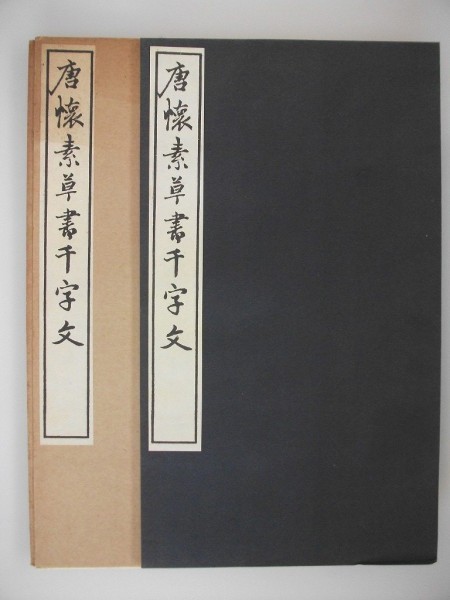 唐懷素草書千字文
唐懷素草書千字文